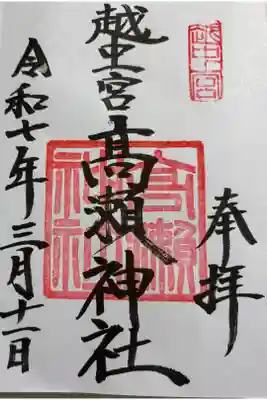 奉拝
越中宮
越中一宮
高瀬神社
高瀬神社
令和七年三月十一日